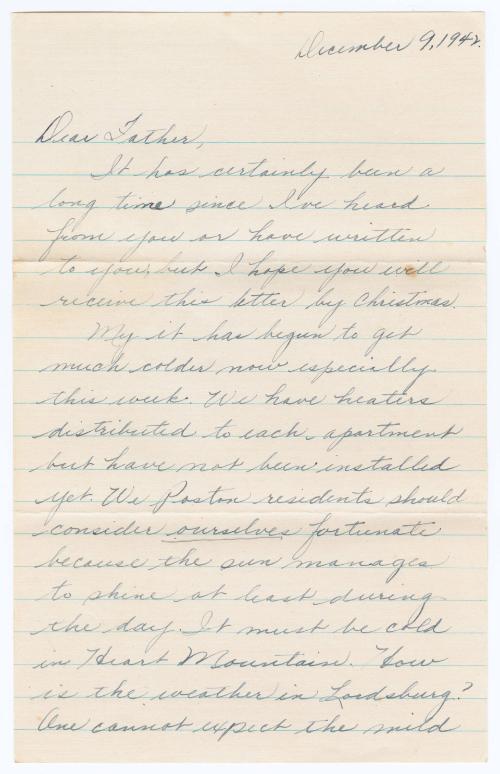 December 9, 1942.
Dear Father,
It has certainly been a
long time since I've heard
from you or have written
to you, but I hope you will
receive this letter by Christmas.
My it has begun to get
much colder now especially
this week. We have heaters
distributed to each apartment
but have not been installed
yet. We Poston residents should
consider ourselves fortunate
because the sun manages
to shine at least during
the day. It must be cold
in Heart Mountain. How
is the weather in Lordsburg?
One cannot expect the mild